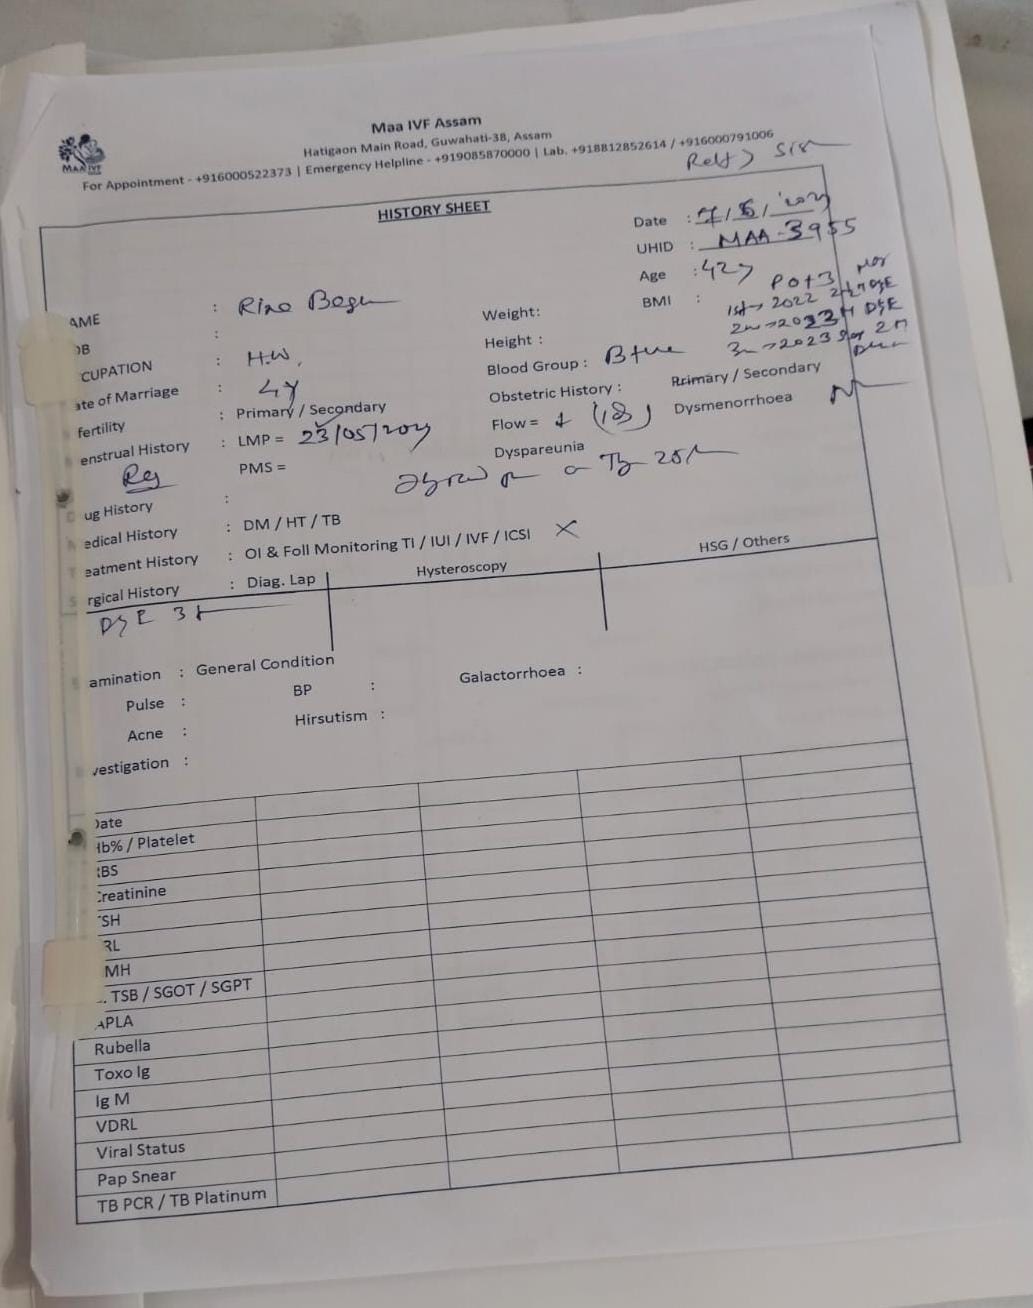 Maa IVF Assam
Hatigaon Main Road, Guwahati-38, Assam
For Appointment - +916000522373 | Emergency Helpline - +919085870000 | Lab. +918812852614 / +916000791006
MAA IVF
HISTORY SHEET
Date :
UHID : MAA-3955
Age : 42y
BMI :
P0+3
1st → 2022
AME :
OB :
CUPATION : H.W.
ate of Marriage : 4y
fertility : Primary / Secondary
enstrual History : LMP = 23/05/
Reg
PMS =
Weight:
Height :
Blood Group : B+ve
Obstetric History :
Flow =
Primary / Secondary
Dysmenorrhoea
Dyspareunia
ug History :
edical History : DM / HT / TB
eatment History : OI & Foll Monitoring TI / IUI / IVF / ICSI X
rgical History : Diag. Lap
Hysteroscopy
HSG / Others
amination : General Condition
Pulse :
BP :
Galactorrhoea :
Acne :
Hirsutism :
vestigation :
ate
Hb% / Platelet
BS
reatinine
TSH
RL
MH
. TSB / SGOT / SGPT
APLA
Rubella
Toxo Ig
Ig M
VDRL
Viral Status
Pap Snear
TB PCR / TB Platinum